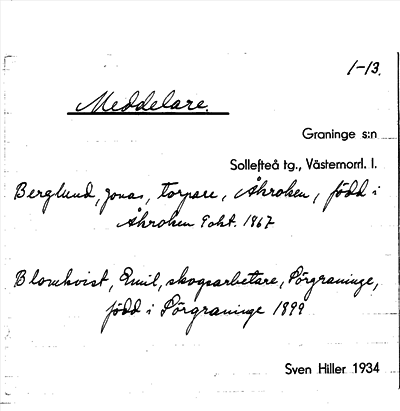 1-13.
Meddelare.
Graninge s:n
Sollefteå tg., Västernorrl. l.
Berglund, Jonas, torpare, Åkroken, född i
Åkroken 9 okt. 1867
Blomkvist, Emil, skogsarbetare, Sörgraninge,
född i Sörgraninge 1899
Sven Hiller 1934